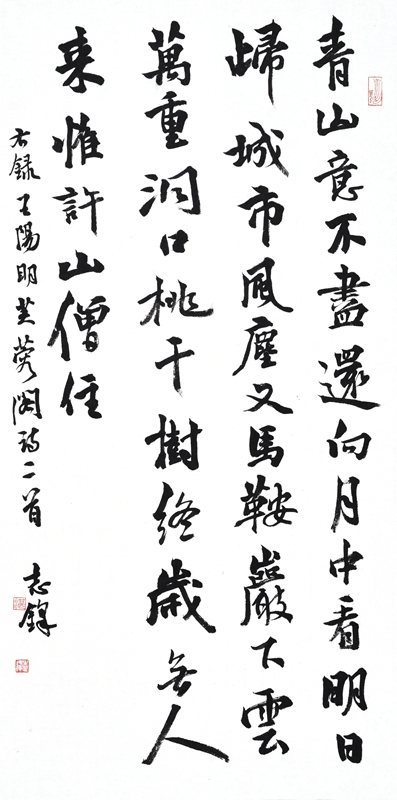 青山意不盡還向月中看明日
歸城市風塵又馬鞍巖下雲
萬重洞口桃千樹終歲無人
来惟許山僧住
右録王陽明芙蓉閣詩二首 志鋒